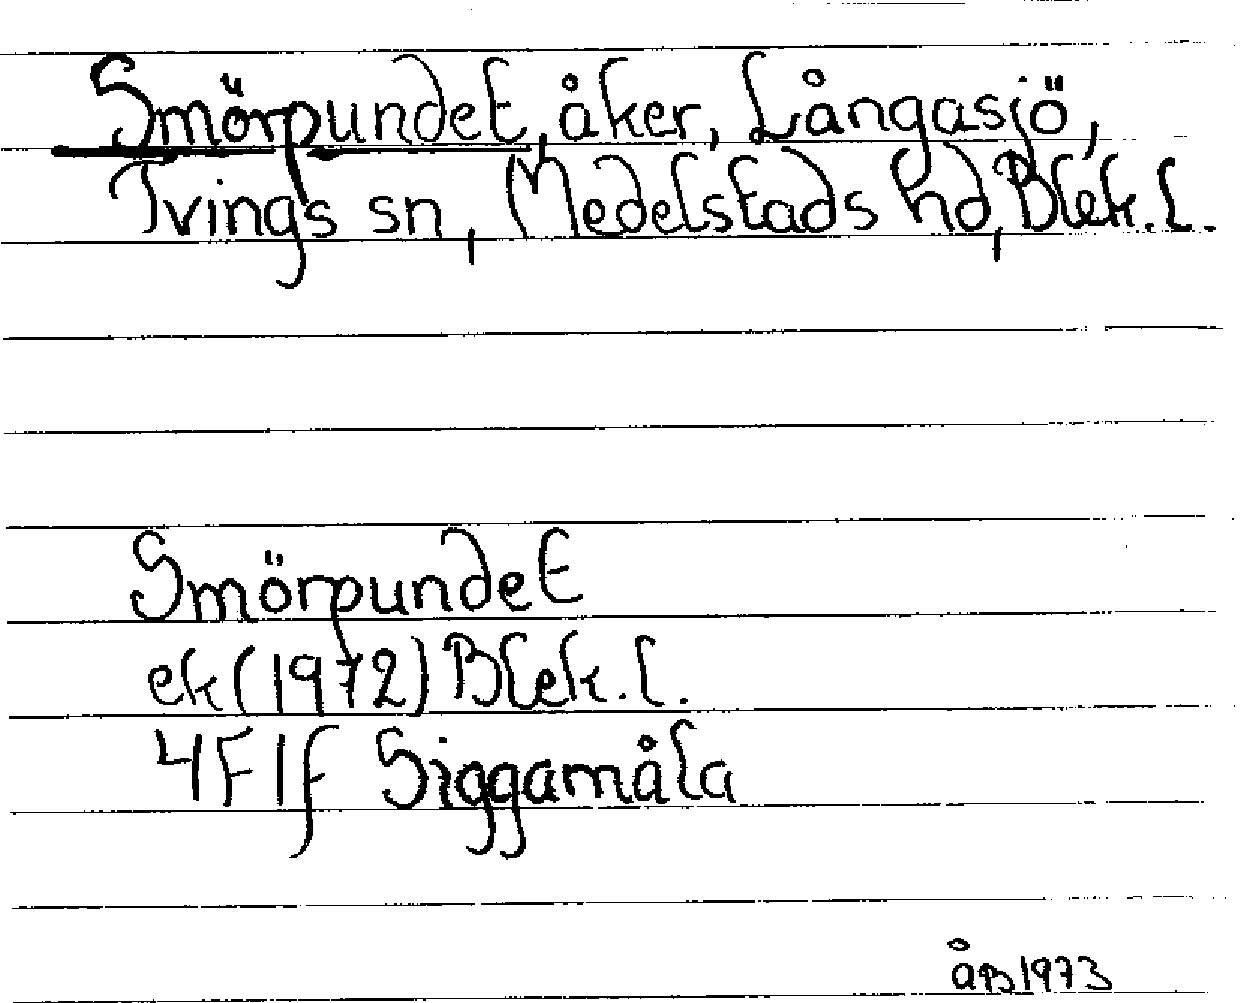 Smörpundet, åker, Långasjö,
Tvings sn, Medelstads hd, Blek. l.
Smörpundet
ek (1972) Blek. l.
4F1f Siggamåla
åB 1973